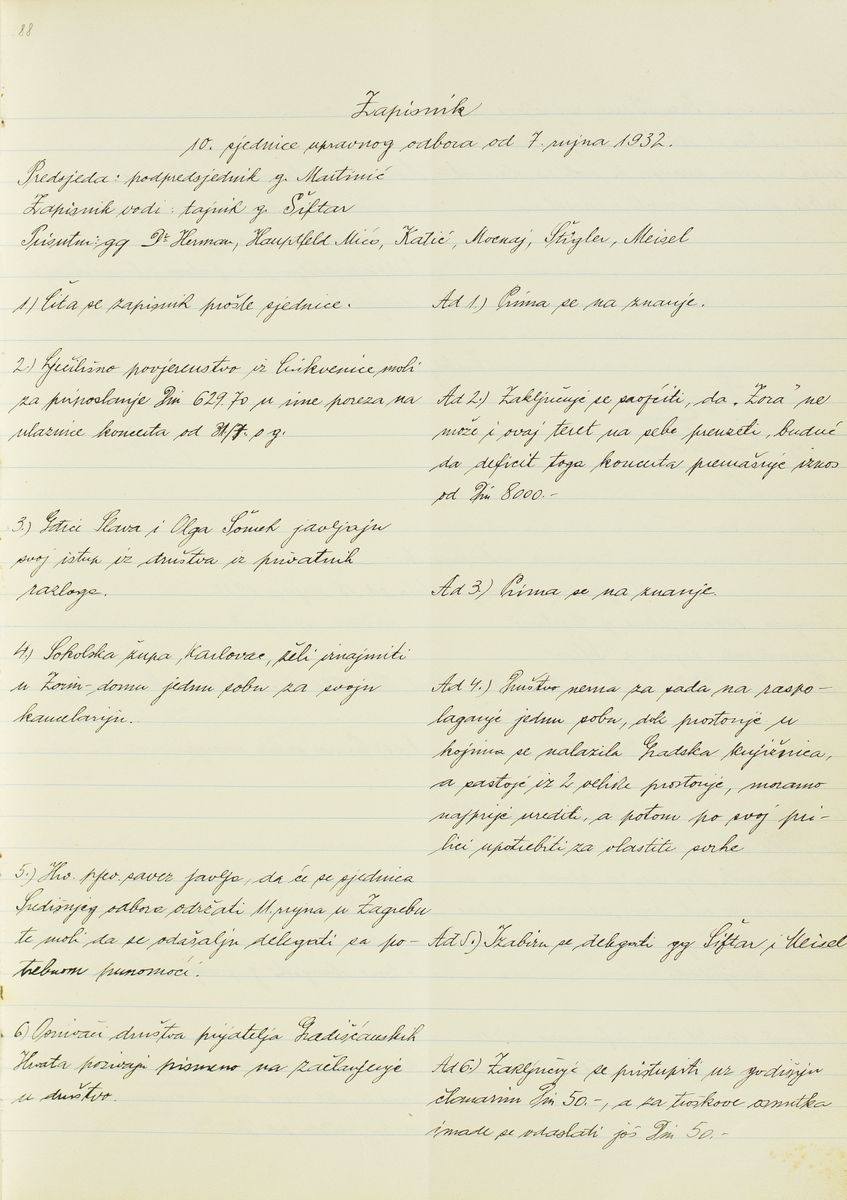 88
Zapisnik
10. sjednice upravnog odbora od 7. rujna 1932.
Predsjeda: podpredsjednik g. Martinić
Zapisnik vodi: tajnik g. Šiftar
Prisutni: gg Dr. Herman, Hauptfeld Mićo, Katić, Mocnaj, Štigler, Meisel
1.) Čita se zapisnik prošle sjednice.
Ad 1.) Prima se na znanje.
2.) Lječilišno povjerenstvo iz Crikvenice moli
za pripislanje Din 629.70 u ime poreza na
ulaznice koncerta od o g.
Ad 2.) Zaključuje se saopćiti, da „Zora" ne
može i ovaj teret na sebe preuzeti, budući
da deficit toga koncerta premašuje iznos
od Din 8000.-
3.) Gdjici Slava i Olga Šomek javljaju
svoj istup iz društva iz privatnih
razloga.
Ad 3.) Prima se na znanje.
4.) Sokolska župa Karlovac, želi iznajmiti
u Zorin-domu jednu sobu za svoju
kancelariju.
Ad 4.) Društvo nema za sada na raspo-
laganje jednu sobu, dok prostorije u
kojima se nalazila Gradska knjižnica,
a sastoje iz 2 velike prostorije, moramo
najprije urediti, a potom po svoj pri-
lici upotrebiti za vlastite svrhe
5.) Hrv. pjev. savez javlja, da će se sjednica
Središnjeg odbora održati 11. rujna u Zagrebu
te moli da se odašalju delegati sa po-
trebnom punomoći.
Ad 5.) Izabiru se delegati gg Šiftar i Meisel
6.) Osnivači društva prijatelja Gradišćanskih
Hrvata pozivaju pismeno na začlanjenje
u društvo.
Ad 6.) Zaključuje se pristupiti uz godišnju
članarinu Din 50.-, a za troškove osnutka
imade se odaslati još Din 50.-